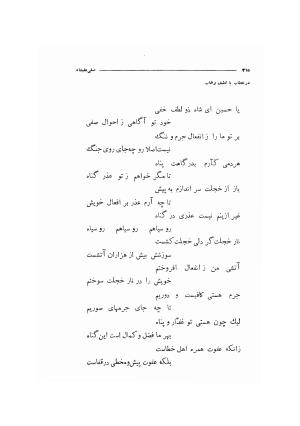 ۳۱۸ صفی‌علیشاه
در خطاب با لطیف وهاب
یا حسین ای شاه ذو لطف خفی
خود تو آگاهی ز احوال صفی
بر تو ما را ز انفعال جرم و ننگ
نیست اصلا رو چه جای روی جنگ
هر دمی کآرم بدرگاهت پناه
تا مگر خواهم ز تو عذر گناه
باز از خجلت سر اندازم به پیش
تا چه آرم عذر بر افعال خویش
غیر ازینم نیست عذری در گناه
رو سیاهم رو سیاهم رو سیاه
نار خجلت گر دلی خجلت کشست
سوزشش بیش از هزاران آتشست
آتشی من ز انفعال افروختم
تا چرم را در نار خجلت سوختم
جرم هستی کافیست و دوریم
تا چه جای جرمهای سوریم
لیك چون هستی تو غفار و پناه
بهر ما فضل و کمال است این گناه
زانکه عفوت همره اهل خطاست
بلکه عفوت پیش و مخطی در قفاست